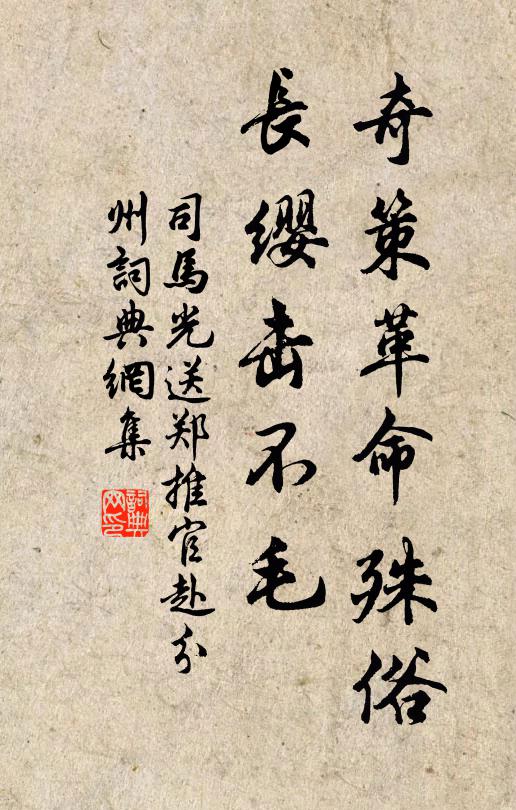 奇策革命殊俗
長缨击不毛
司馬光送郑推官赴分
州詞典網集
詞典网印